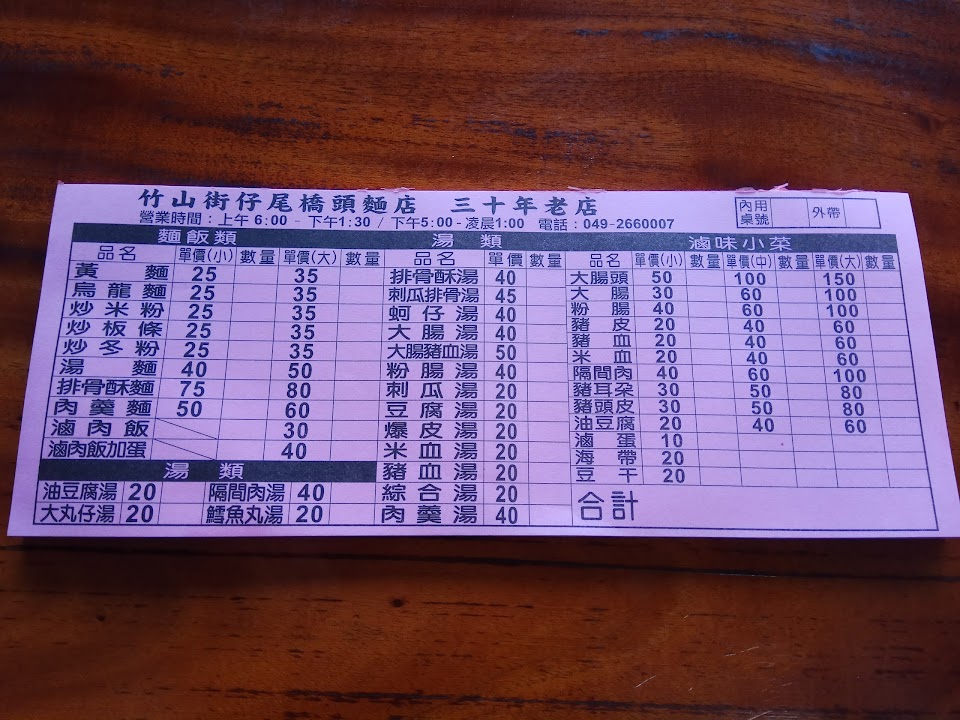 竹山街仔尾橋頭麵店 三十年老店
營業時間：上午6:00 - 下午1:30 / 下午5:00 - 凌晨1:00 電話：049-2660007
內用桌號 外帶
麵飯類
品名 單價(小) 數量 單價(大) 數量
黃麵 25 35
烏龍麵 25 35
炒米粉 25 35
炒板條 25 35
炒冬粉 25 35
湯麵 40 50
排骨酥麵 75 80
肉羹麵 50 60
滷肉飯 30
滷肉飯加蛋 40
湯類
油豆腐湯 20 隔間肉湯 40
大丸仔湯 20 鱈魚丸湯 20
湯類
品名 單價 數量
排骨酥湯 40
刺瓜排骨湯 45
蚵仔湯 40
大腸湯 40
大腸豬血湯 50
粉腸湯 40
刺瓜湯 20
豆腐湯 20
爆皮湯 20
米血湯 20
豬血湯 20
綜合湯 20
肉羹湯 40
滷味小菜
品名 單價(小) 數量 單價(中) 數量 單價(大) 數量
大腸頭 50 100 150
大腸 30 60 100
粉腸 40 60 100
豬皮 20 40 60
豬血 20 40 60
米血 20 40 60
隔間肉 40 60 100
豬耳朵 30 50 80
豬頭皮 30 50 80
油豆腐 20 40 60
滷蛋 10
海帶 20
豆干 20
合計